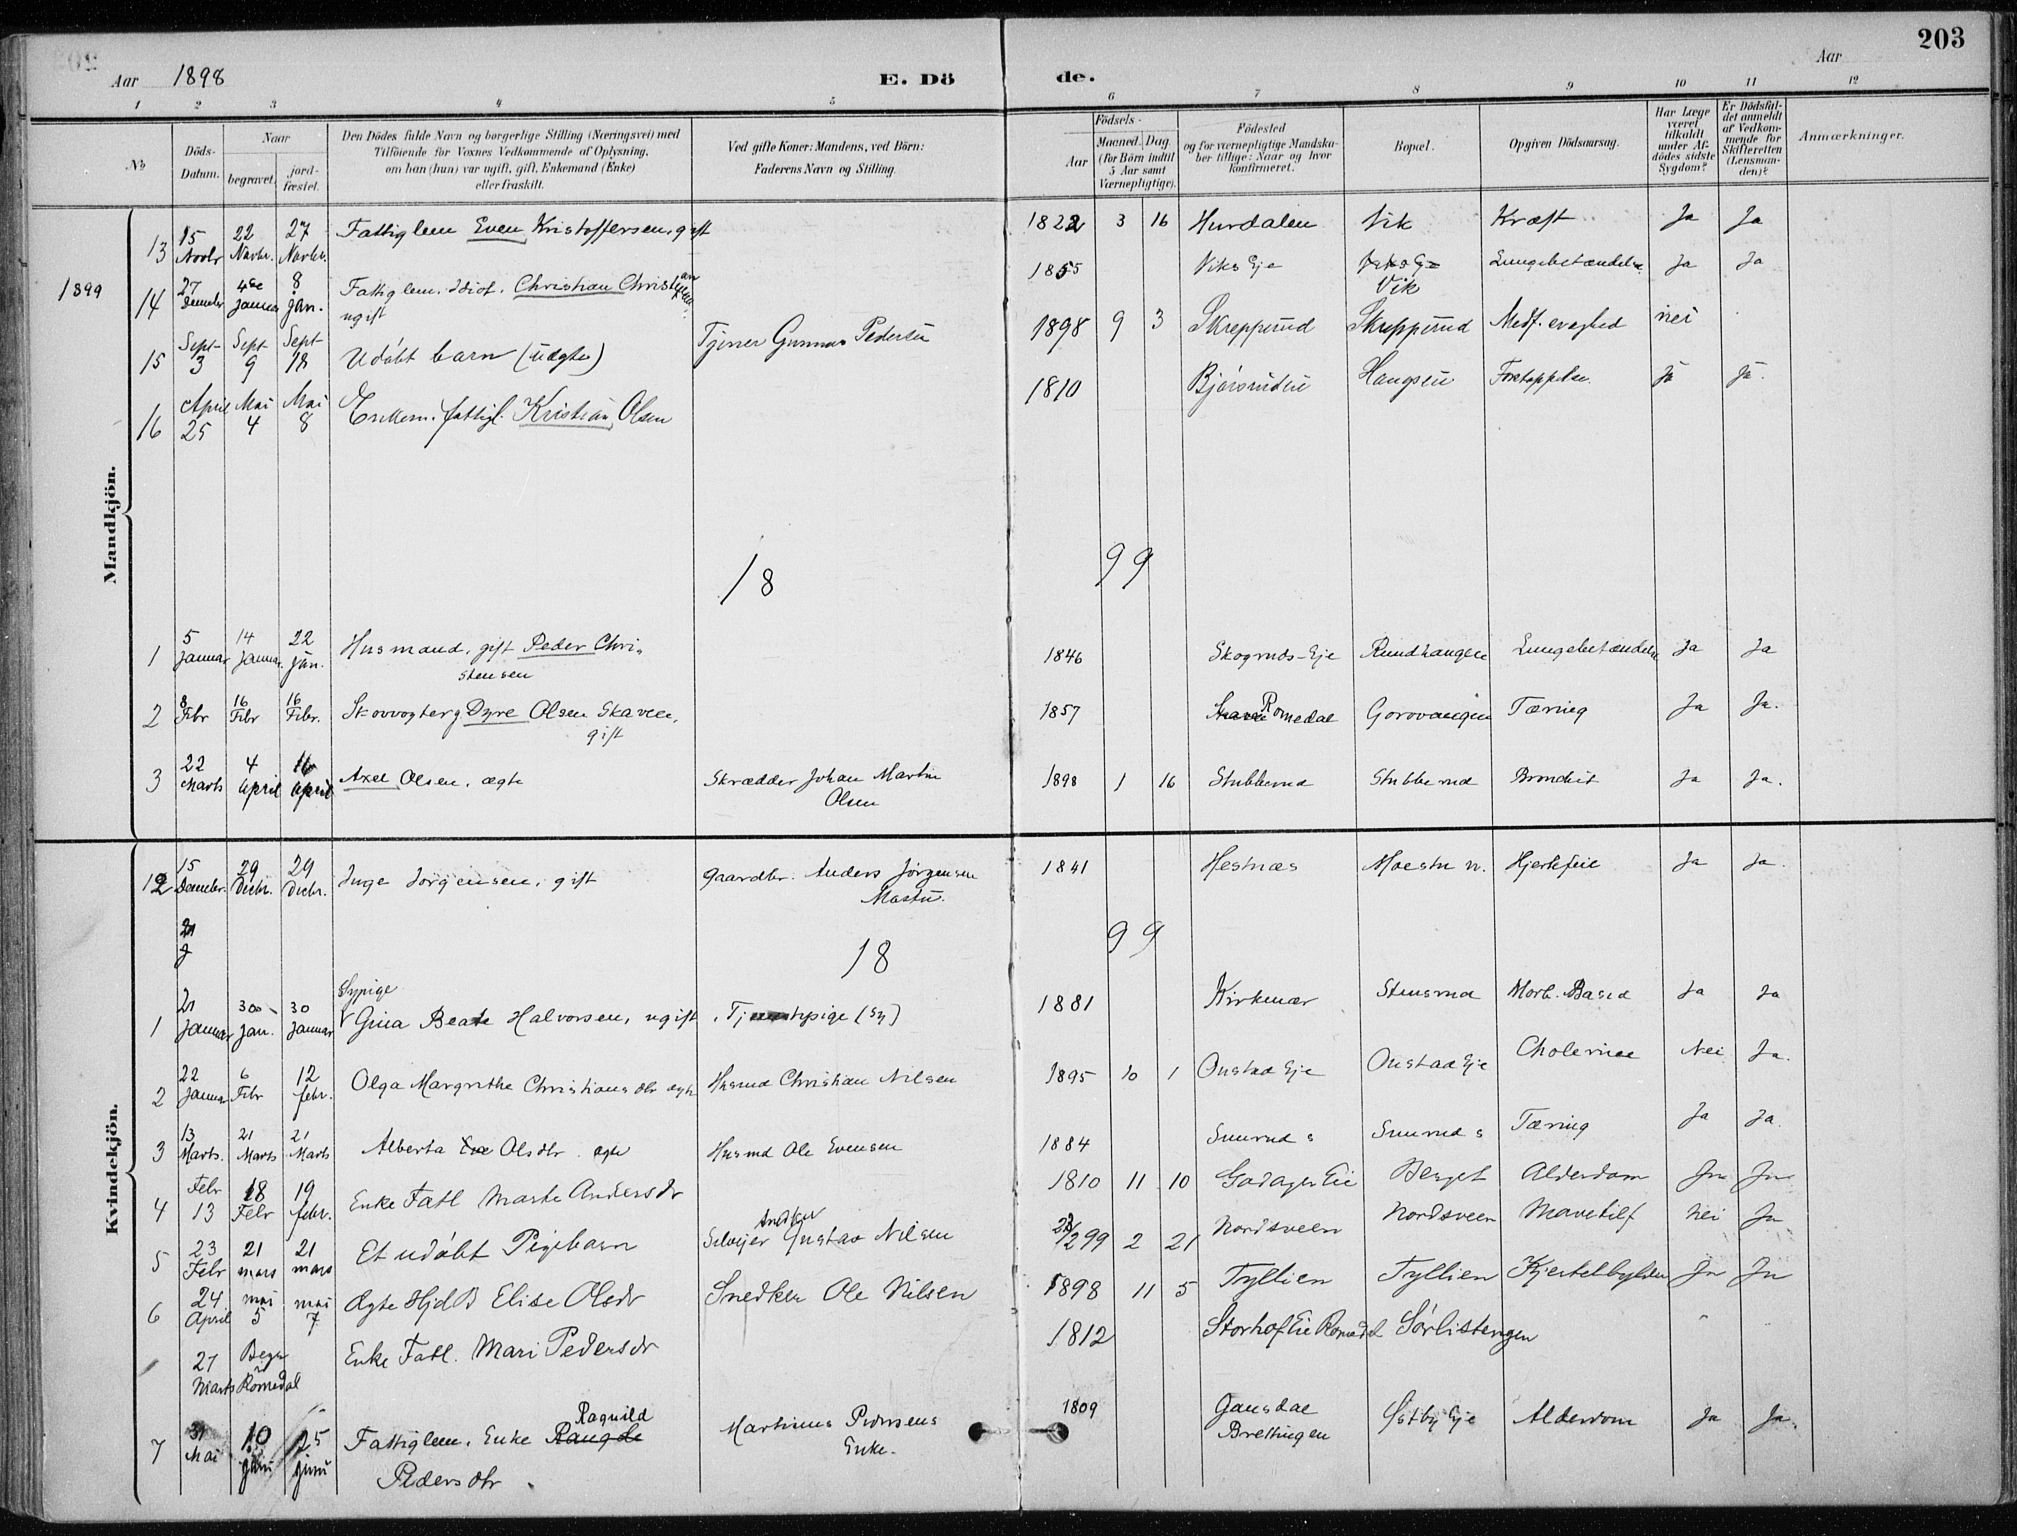 203
Aar 1898
E. Dö
de.
Aar
1 2 3 4 5 6 7 8 9 10 11 12
No
Döds-Datum.
Naar
begravet.
jord-fæstet.
Den Dödes fulde Navn og borgerlige Stilling (Næringsvei) med
Tilföiende for Voxnes Vedkommende af Oplysning,
om han (hun) var ugift, gift, Enkemand (Enke)
eller fraskilt.
Ved gifte Koner: Mandens, ved Börn:
Faderens Navn og Stilling.
Födsels-
Aar
Maaned. Dag.
(for Börn indtil
5 Aar samt
Værnepligtige).
Födested
og for værnepligtige Mandska-
ber tillige: Naar og hvor
konfirmeret.
Bopæl.
Opgiven Dödsaarsag.
Har Læge
været
tilkaldt
under Af-
dödes sidste
Sygdom?
Er Dödsfal-
det anmeldt
af Vedkom-
mende for
Skifteretten
(Lensman-
den)?
Anmærkninger.
Mandkjön.
13 15 Novbr 22 Novbr. 27 Novbr. Fattiglem Even Kristoffersen, gift 1822 3 16 Hurdalen Vik Kræft Ja Ja
1899
14 27 Decmbr 4de Januar 8 Jan. Fattiglem. Idiot. Christian Christiansen ugift 1855 Viks Eje Vik Lungebetændelse Ja Ja
15 Sept 3 Sept 9 Sept 18 Udøbt barn (uægte) Tjener Gunnar Pedersen 1898 9 3 Skrepperud Skrepperud Medf. svaghed nei
16 April 25 Mai 4 Mai 8 Enkem. fattigl. Kristian Olsen 1810 Haugsen Forstoppelse. Ja Ja.
18 99
1 5 Januar 14 Januar. 22 Jan. Husmand, gift Peder Chri-
stensen 1846 Skogruds-Eje Rundhaugen Lungebetændelse Ja Ja
2 8 Febr 16 Febr 16 Febr. Skovvogter Dyre Olsen Skaven,
gift 1857 Romedal Gorovangen Tæring Ja Ja.
3 22 Marts 4 April 16 April Axel Olsen, ægte Skrædder Johan Martin
Olsen 1898 1 16 Stubberud Stubberud Bronchit Ja Ja.
Kvindekjön.
12 15 Decmbr. 29 Decbr. 29 Decbr. Inge Jörgensen, gift Gaardbr. Anders Jörgensen
Mostu. 1841 Hestnæs Moestu n. Hjertefeil Ja Ja.
21
J
18 99
Sypige
1 21 Januar 30 Jan. 30 Januar Gina Beate Halvorsen, ugift, Tjenestepige (Sy) 1881 Kirkenær Stensrud Morb. Based Ja Ja
2 22 Januar 6 Febr 12 febr. Olga Margrethe Christiansdtr ægte Husmd Christian Nilsen 1895 10 1 Onstad Eje Onstad Eje Cholerine Nei Ja.
3 13 Marts. 21 Marts 21 Marts Alberta Olsdtr. ægte Husmd Ole Evensen 1884 Tæring Ja Ja.
4 Febr 13 18 Febr 19 febr. Enke Fatl Marte Andersdr 1810 11 10 Godager Eie Berget Alderdom Ja Ja
5 23 Febr 21 mars 21 mars Et udøbt Pigebarn Selveier Snedker Gustav Nilsen 23/2 99 2 21 Nordsveen Nordsveen Mavetilf Nei Ja
6 24 April mai 5 mai 7 Ægte Hjd B Elise Olsdr Snedker Ole Nilsen 1898 11 5 Tyllien Tyllien Kjertelbylder Ja Ja
27 Marts Begr i Romedal Enke Fatl. Mari Pedersdr 1812 Storhof Eie Romedal Sørlistengen
7 31 Mai 10 Juni 25 Juni Fattiglem. Enke Ragnild
Pedersdtr Martinus Pedersens
Enke. 1809 Gausdal
Brettingen Østby Eje Alderdom Ja Ja.